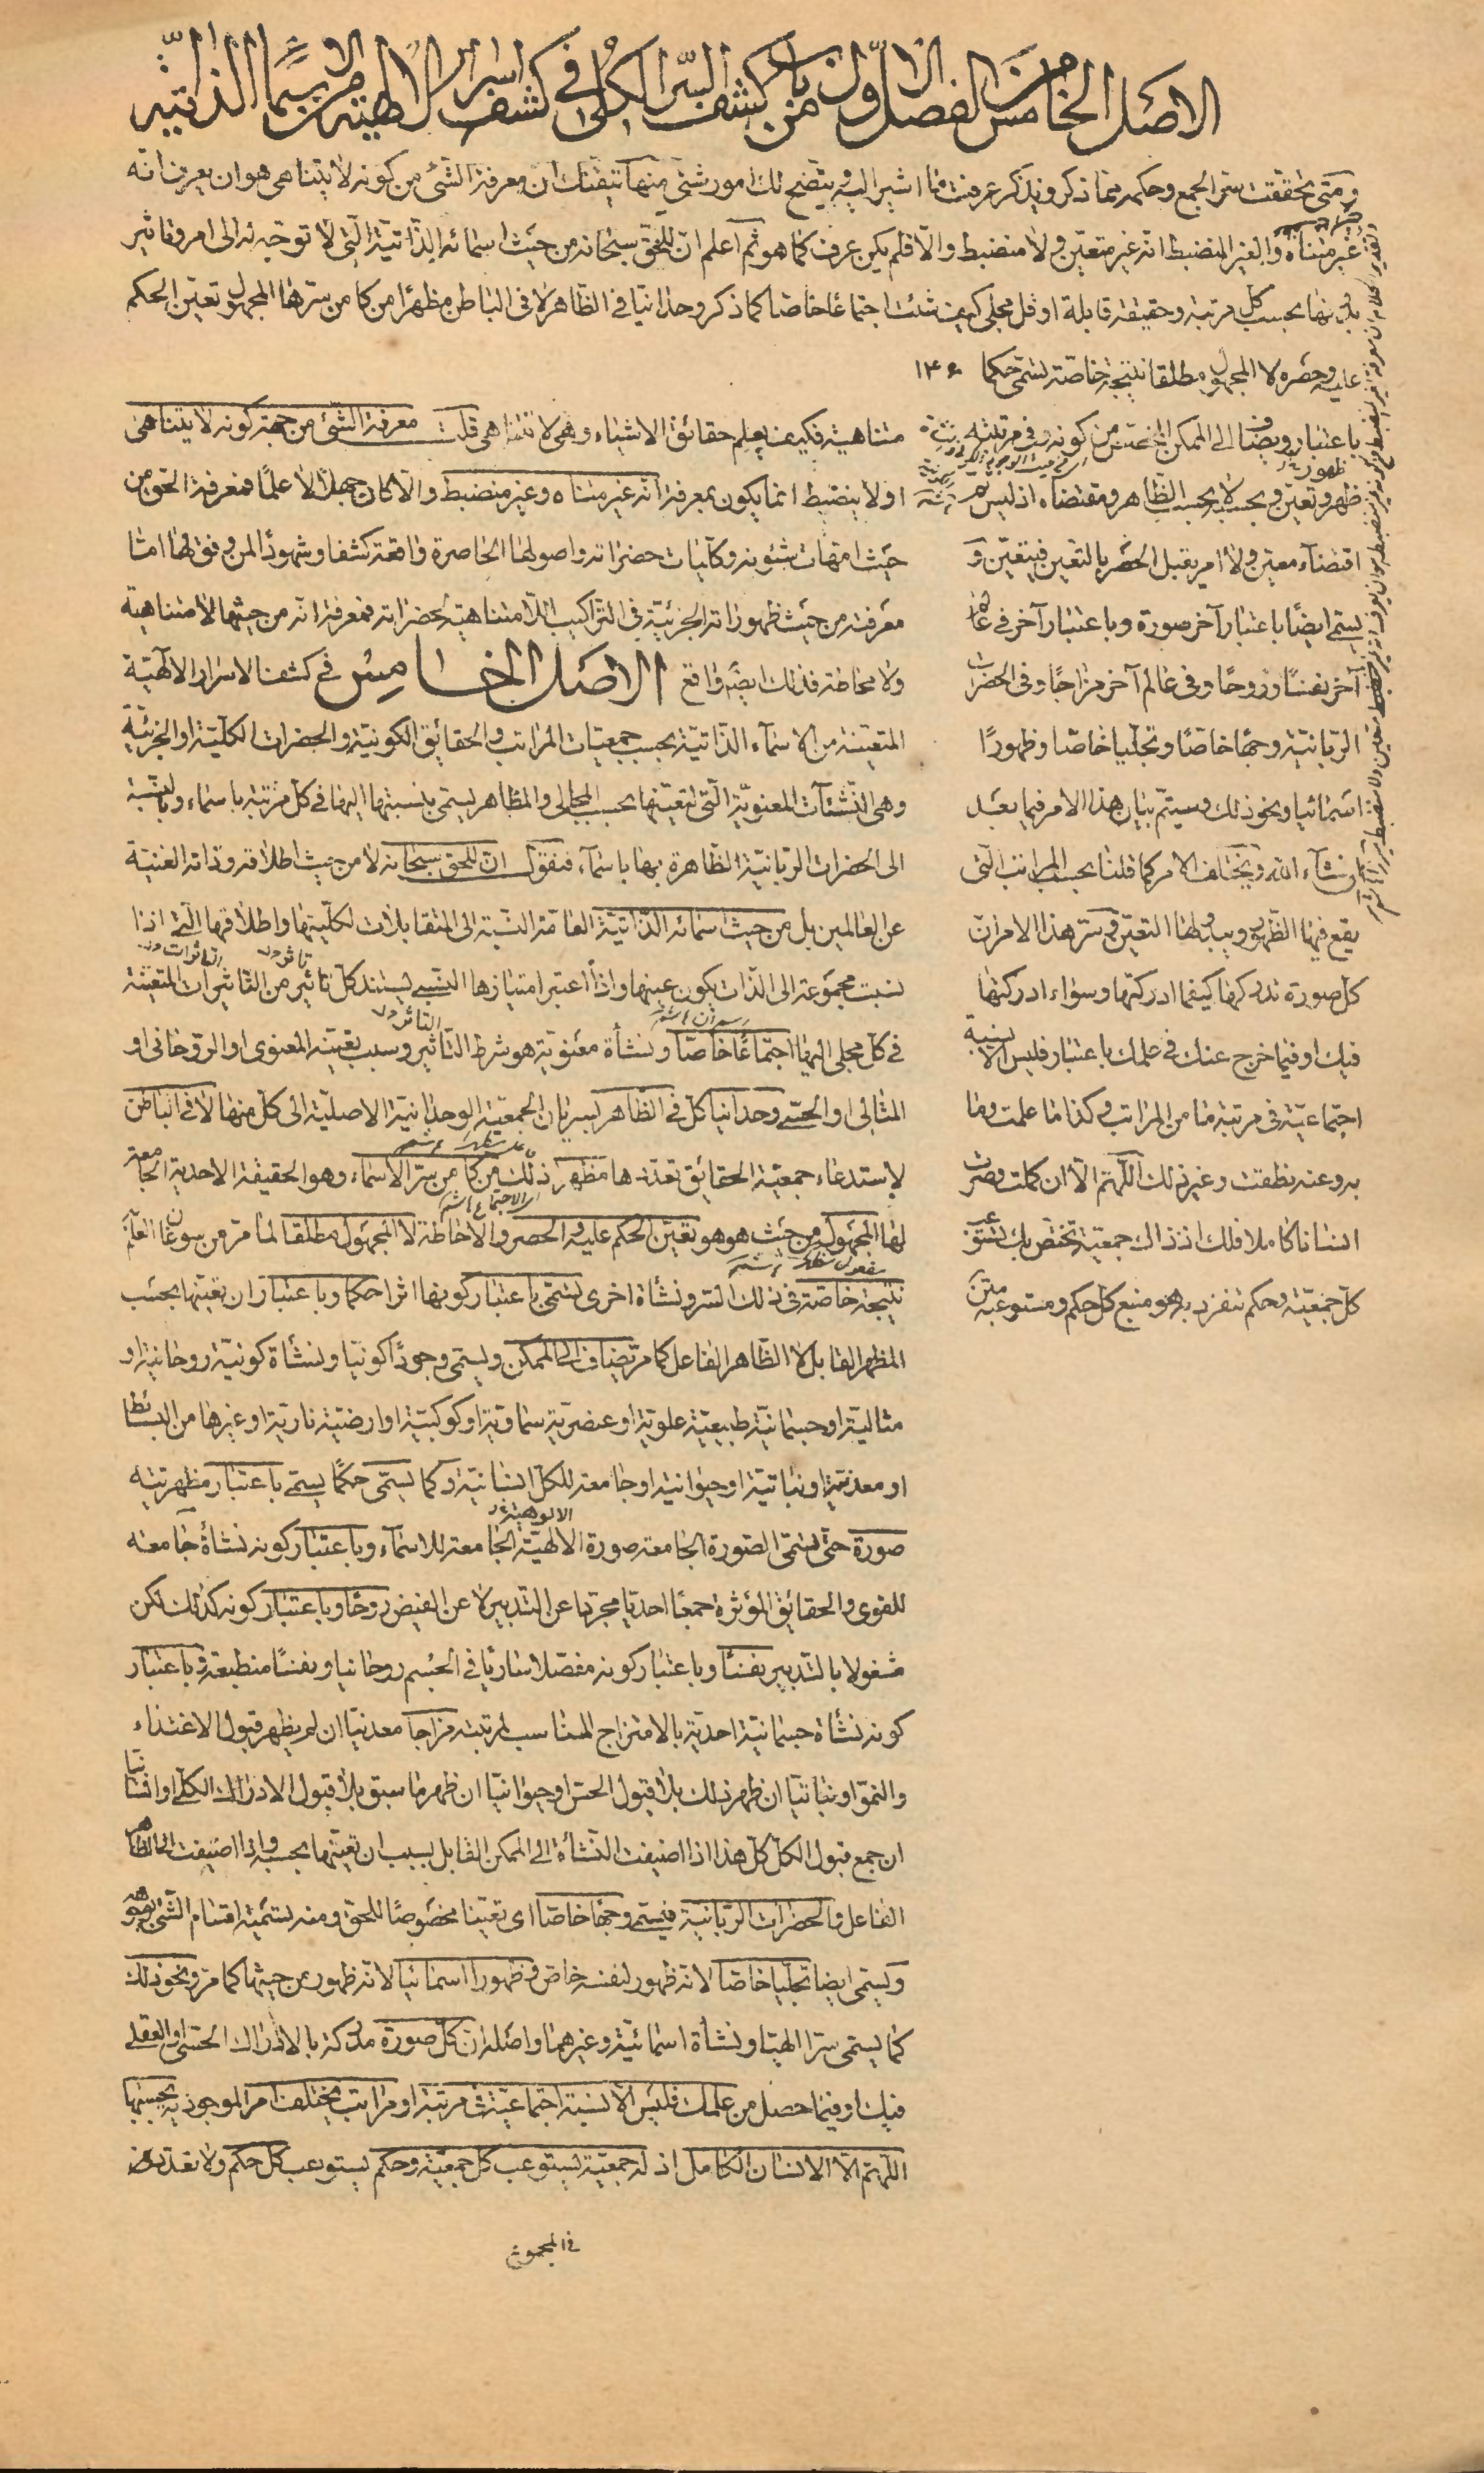 الاصل الخامس من الفصل الاول من باب كشف السر الكلى فى كشف اسرار الالهية من الاسماء الذاتية
ومتى تحققت سر الجمع وحكمه مما ذكر ويذكر عرفت ما اشير اليه ويتضح لك امور شتى منها تيقنك ان معرفة الشئ من كونه لا يتناهى هو ان يعرف انه
غير متناه والغير المنضبط انه غير متعين ولا منضبط والا فلم يكن عرف كما هو ثم اعلم ان للحق سبحانه من حيث اسمائه الذاتية التى لا توجه له الى امر وتاثير
بدونها بحسب كل مرتبة وحقيقة قابلة او قل مجلى كيف شئت اجتماعا خاصا كما ذكر وحدانيا فى الظاهر لا فى الباطن مظهرا من كامن سرها المجهول تعين الحكم
عليه وحصره لا المجهول مطلقا نتيجة خاصة تسمى حكما ۱۴۶
باعتبار ويضاف الى الممكن المختص من كونه فى مرتبته
ظهر وتعين وبحسبه لا بحسب الظاهر ومقتضاه اذ ليس
اقتضاء معين ولا امر يقبل الحصر بالتعين فيتعين و
يسمى ايضًا باعتبار آخر صورة وباعتبار آخر فى عالم
آخر نفسًا وروحًا وفى عالم آخر مزاجًا وفى الحضرات
الربانية وجهًا خاصًا وتجليا خاصا وظهورًا
اسمائيا ونحو ذلك وسيتم بيان هذا الامر فيما بعد
ان شاء الله ويختلف الامر كما قلنا بحسب المراتب التى
يقع فيها الظهور وبها التعين وسر هذا الامر ان
كل صورة تدركها كيفما ادركتها وسواء ادركتها
فيك او فيما خرج عنك فى علمك باعتبار فليس الا نسبة
اجتماعية فى مرتبة ما من المراتب وكذا ما علمت وما
به وعنه نطقت وغير ذلك اللهم الا ان كملت وصرت
انسانا كاملا فلك اذ ذاك جمعية تختص بك تستوعب
كل جمعية وحكم تنفرد به هو منبع كل حكم ومستوعبه
متناهية فكيف يعلم حقائق الاشياء وهى لا تتناهى قلت معرفة الشئ من جهة كونه لا يتناهى
او لا ينضبط انما يكون بمعرفة انه غير متناه وغير منضبط والا كان جهلا لا علمًا فمعرفة الحق من
حيث امهات شئونه وكليات حضراته واصولها الحاصرة واقعة كشفا وشهودًا لمن وفق لها اما
معرفته من حيث ظهوراته الجزئية فى التراكيب اللا متناهية لحضراته فمعرفة انه من حيثها لا متناهية
ولا محاطة فذلك ايضًا واقع الاصل الخامس فى كشف الاسرار الالهية
المتعينة من الاسماء الذاتية بحسب جمعيات المراتب والحقائق الكونية والحضرات الكلية او الجزئية
وهى النشئآت المعنوية التى تتعينها بحسب المجالى والمظاهر يسمى بنسبتها اليها فى كل مرتبة باسماء وبالنسبة
الى الحضرات الربانية الظاهرة بها باسماء فنقول ان للحق سبحانه لا من حيث اطلاقه وذاته الغنية
عن العالمين بل من حيث اسمائه الذاتية العامة النسبة الى المتقابلات لكليتها واطلاقها التى اذا
نسبت مجموعة الى الذات يكون عينها واذا اعتبر امتيازها النسبى يستند كل تاثير من التاثيرات المتعينة
فى كل مجلى اليها اجتماعًا خاصًا ونشأة معنوية هو شرط التاثير وسبب تعينه المعنوى او الروحانى او
المثالى او الحسى وحدانيا كل فى الظاهر بسريان الجمعية الوحدانية الاصلية الى كل منها لا فى الباطن
لاستدعاء جمعية الحقائق تعددها مظهر ذلك من كامن سر الاسماء وهو الحقيقة الاحدية الجامعة
لها المجهول من حيث هو هو تعين الحكم عليه والحصر والاحاطة لا المجهول مطلقا لما مر من سوغان العلم
نتيجة خاصة فى ذلك السر ونشأة اخرى تسمى باعتبار كونها اثرا حكما وباعتبار ان تعينها بحسب
المظهر القابل لا الظاهر الفاعل كما مر يضاف الى الممكن ويسمى وجودًا كونيا ونشأة كونية روحانية او
مثالية او جسمانية طبيعية علوية او عنصرية سماوية او كوكبية او ارضية نارية او غيرها من البسائط
او معدنية او نباتية او حيوانية او جامعة للكل انسانية وكما يسمى حكمًا يسمى باعتبار مظهريته
صورة حتى يسمى الصورة الجامعة صورة الالهية الجامعة للاسماء وباعتبار كونه نشأة جامعة
للقوى والحقائق المؤثرة جمعًا احديا مجردا عن التدبير لا عن الفيض روحًا وباعتبار كونه كذلك لكن
مشغولا بالتدبير نفسًا وباعتبار كونه مفصلا ساريًا فى الجسم روحانيا ونفسًا منطبعة وباعتبار
كونه نشأة جسمانية احدية بالامتزاج المناسب لمرتبته مزاجا معدنيًا ان لم يظهر قبول الاغتذاء
والنمو او نباتيًا ان ظهر ذلك بلا قبول الحس او حيوانيًا ان ظهر ما سبق بلا قبول الادراك الكلى او انسانيا
ان جمع قبول الكل كل هذا اذا اضيفت النشأة الى الممكن القابل بسبب ان تعينها بحسبه واذا اضيفت الى الظاهر
الفاعل والحضرات الربانية فيسمى وجهًا خاصًا اى تعينا مخصوصًا للحق ومنه تسمية اقسام الشئ بوجوهه
ويسمى ايضا تجليا خاصا لانه ظهور لنفسه خاص وظهورا اسمائيا لانه ظهور من حيثها كما مر ونحو ذلك
كما يسمى سرا الهيًا ونشأة اسمائية وغيرهما واصله ان كل صورة مدركة بالادراك الحسى او العقلى
فيك او فيما حصل من علمك فليس الا نسبة اجتماعية فى مرتبة او مراتب يختلف امر الموجود به بحسبها
اللهم الا الانسان الكامل اذ له جمعية يستوعب كل جمعية وحكم يستوعب كل حكم
فى المجموع